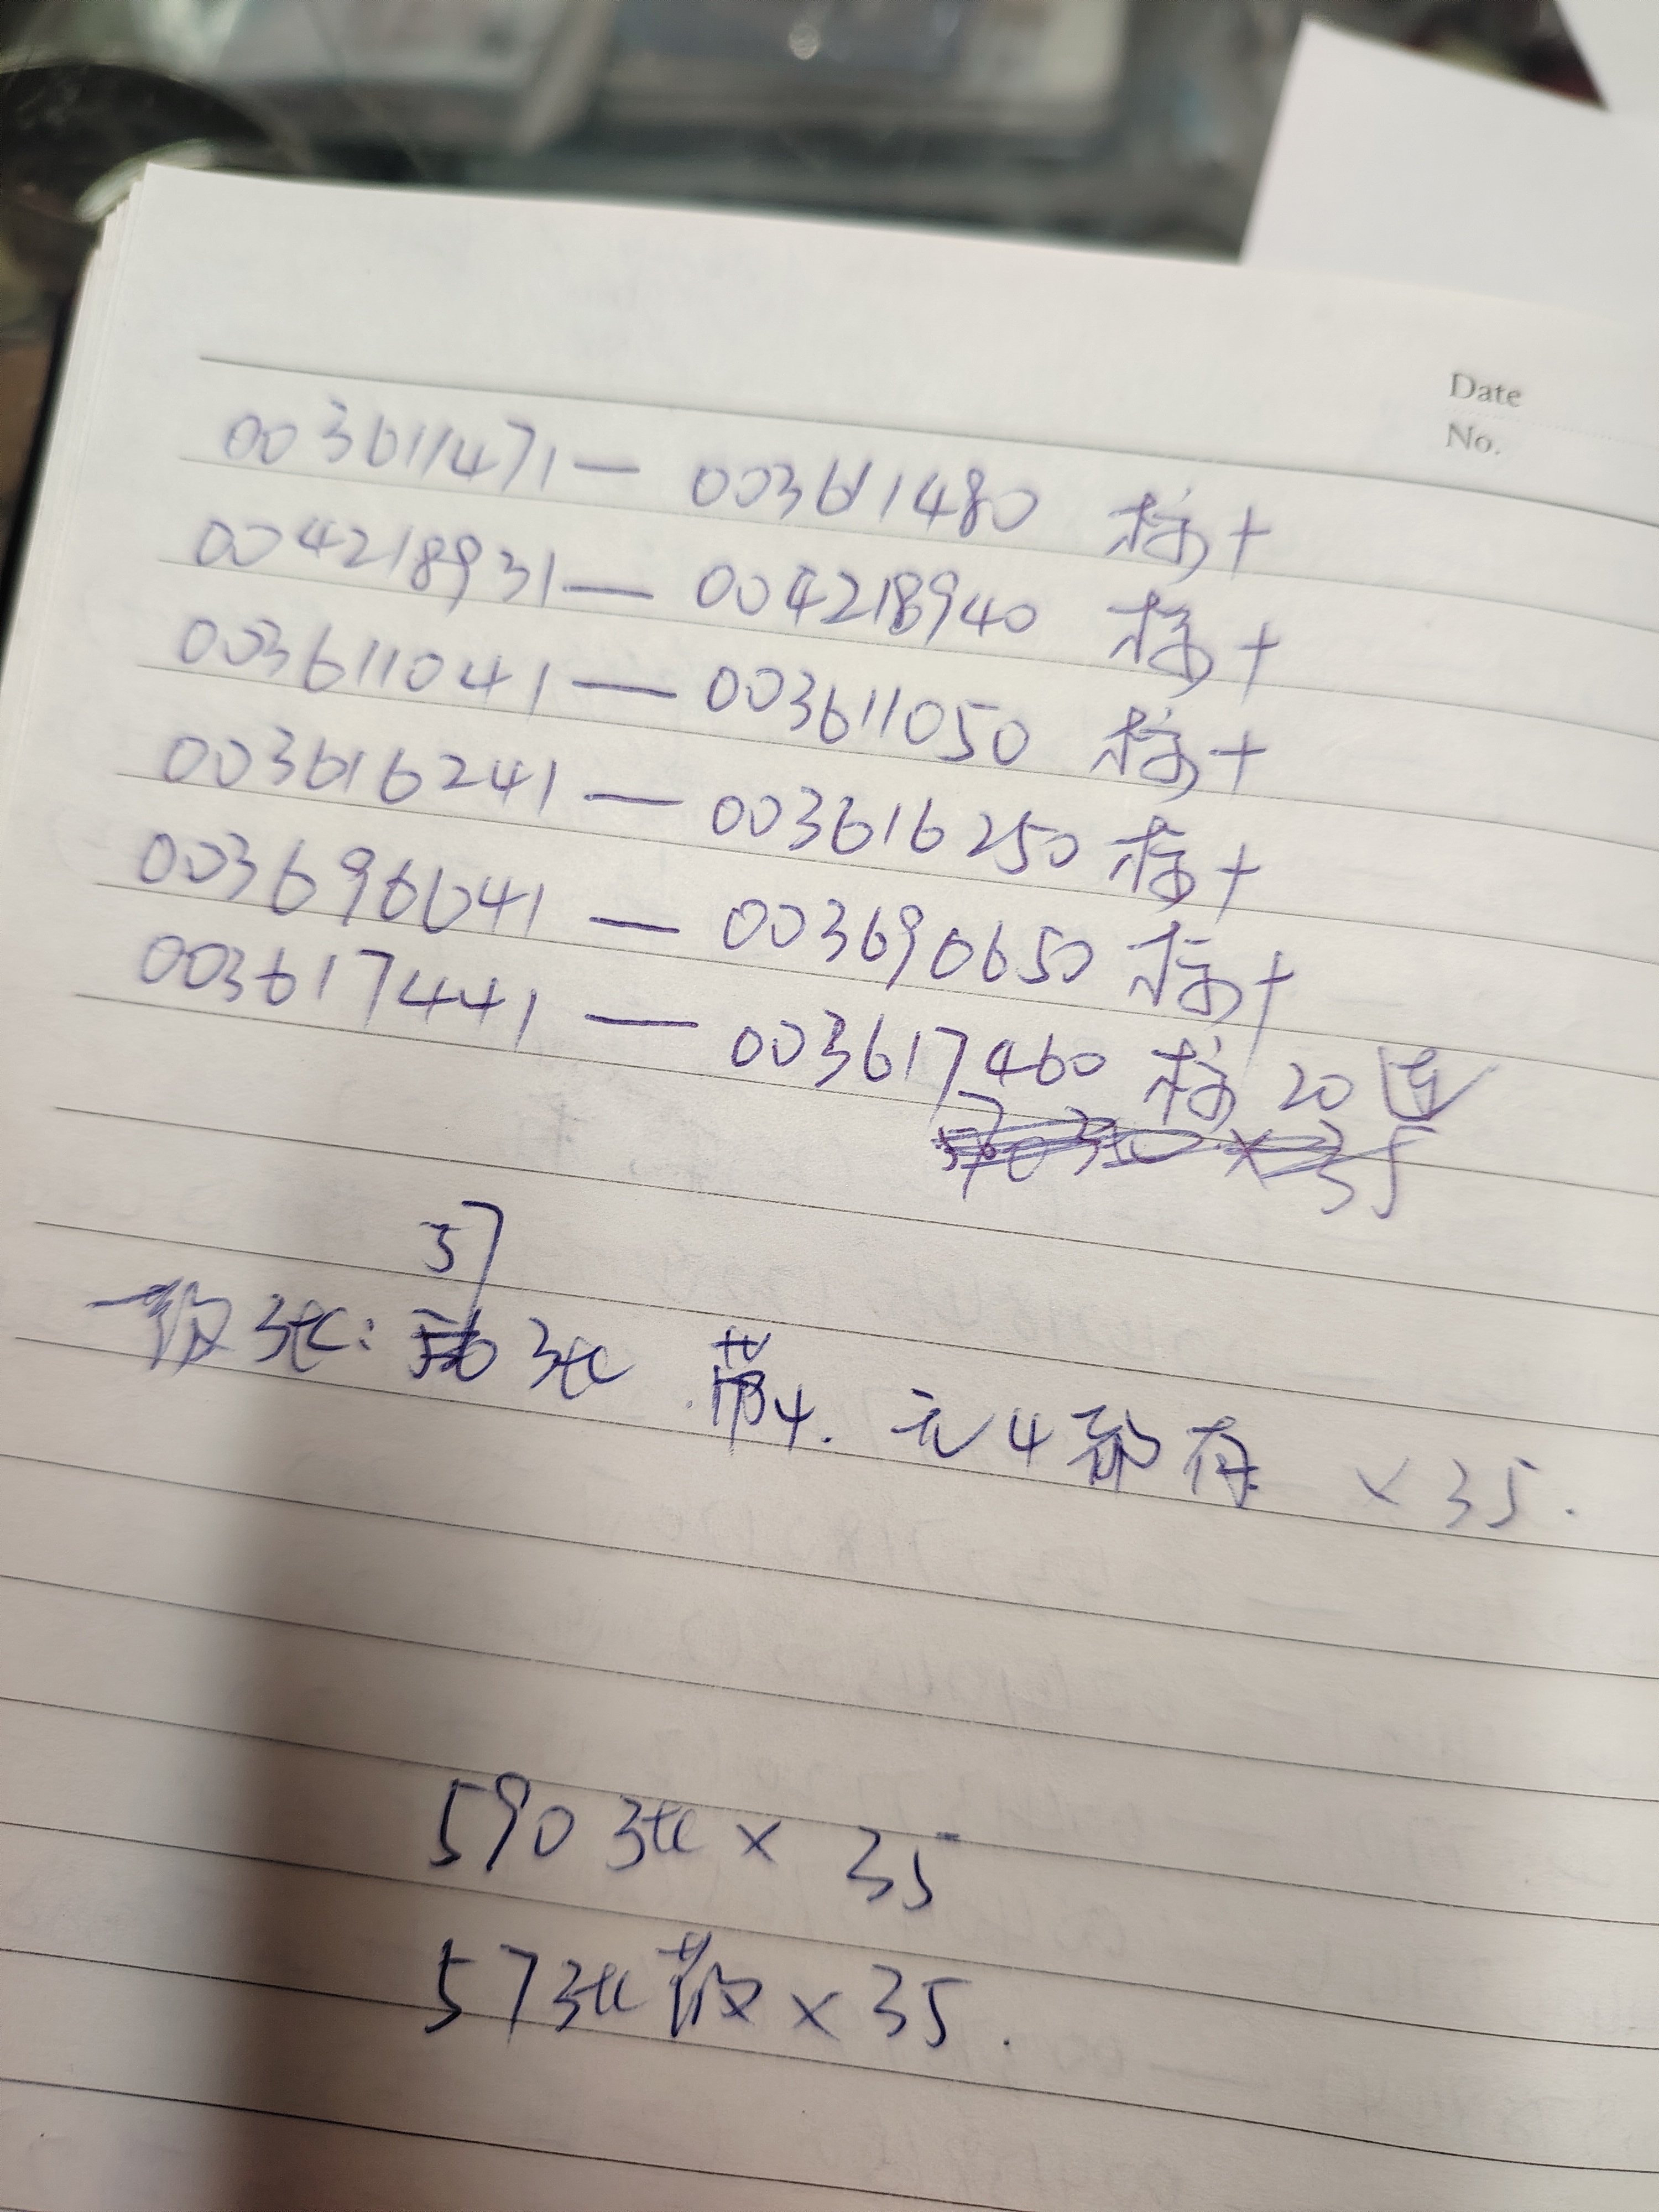 Date
No.
003611471 — 003611480 标十
004218931 — 004218940 标十
003611041 — 003611050 标十
003616241 — 003616250 标十
003690641 — 003690650 标十
003617441 — 003617460 标 20连
57
散张: 张 带4. 无4都有 ×35.
590张 × 35
57张散 × 35.